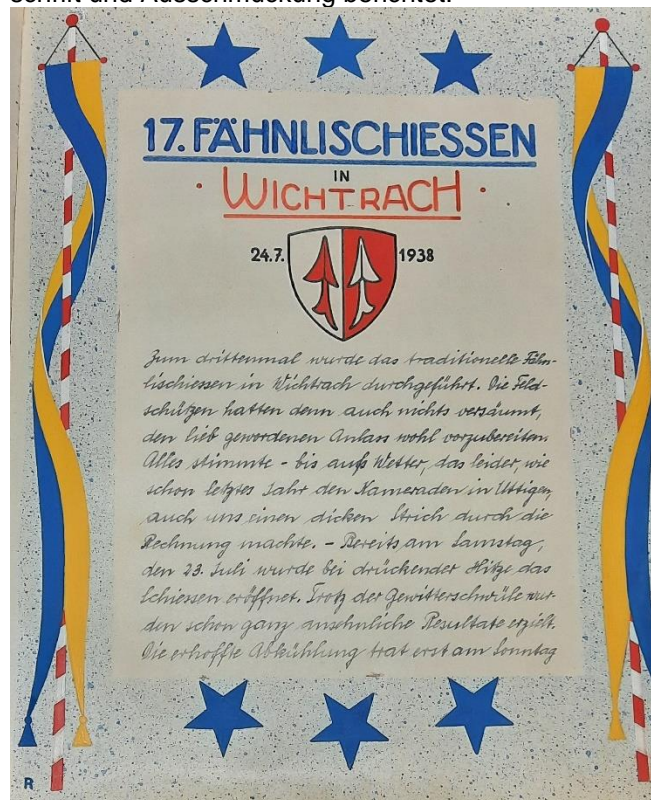 schrift und Ausschmückung berichtet.
17. FÄHNLISCHIESSEN
IN
· WICHTRACH ·
24.7. 1938
Zum drittenmal wurde das traditionelle Fähn-
lischiessen in Wichtrach durchgeführt. Die Feld-
schützen hatten denn auch nichts versäumt,
den lieb gewordenen Anlass wohl vorzubereiten.
Alles stimmte - bis aufs Wetter, das leider, wie
schon letztes Jahr den Kameraden in Uttigen,
auch uns einen dicken Strich durch die
Rechnung machte. - Bereits am Samstag,
den 23. Juli wurde bei drückender Hitze das
Schiessen eröffnet. Trotz der Gewitterschwüle wur-
den schon ganz ansehnliche Resultate erzielt.
Die erhoffte Abkühlung trat erst am Sonntag
R